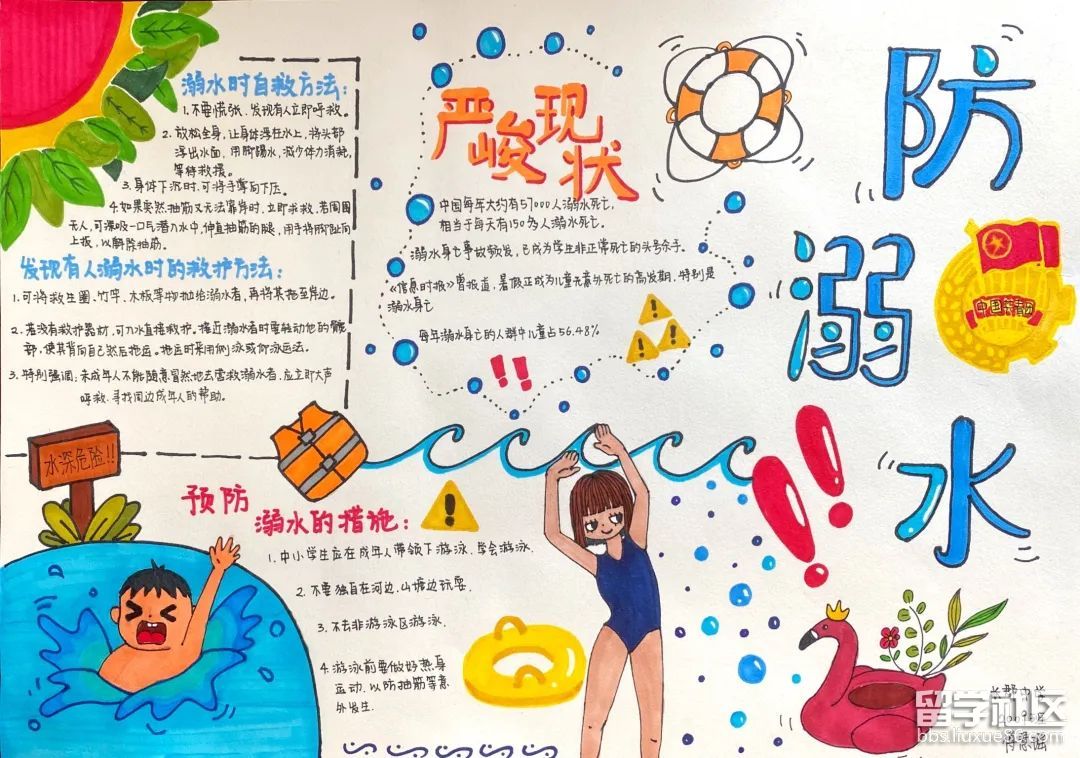 防溺水
溺水时自救方法：
1.不要慌张，发现有人立即呼救。
2.放松全身，让身体浮在水上，将头部
浮出水面，用脚踢水，减少体力消耗，
等待救援。
3.身体下沉时，可将手掌向下压。
4.如果突然抽筋又无法靠岸时，立即求救，若周围
无人，可深吸一口气潜入水中，伸直抽筋的腿，用手将脚趾向
上扳，以解除抽筋。
发现有人溺水时的救护方法：
1.可将救生圈、竹竿、木板等物抛给溺水者，再将其拖至岸边。
2.若没有救护器材，可入水直接救护。接近溺水者时要转动他的髋
部，使其背向自己然后拖运。拖运时采用侧泳或仰泳运法。
3.特别强调：未成年人不能随意冒然地去营救溺水者，应立即大声
呼救，寻找周边成年人的帮助。
严峻现状
中国每年大约有57000人溺水死亡，
相当于每天有150为人溺水死亡。
溺水身亡事故频发，已成为学生非正常死亡的头号杀手。
《信息时报》曾报道，暑假正成为儿童意外死亡的高发期，特别是
溺水身亡
每年溺水身亡的人群中儿童占56.48%
!!
中国共青团
水深危险!!
预防
溺水的措施：
1.中小学生应在成年人带领下游泳，学会游泳.
2.不要独自在河边、山塘边玩耍.
3.不去非游泳区游泳.
4.游泳前要做好热身
运动，以防抽筋等意
外发生.
!!
留学社区
bbs.liuxue86.com